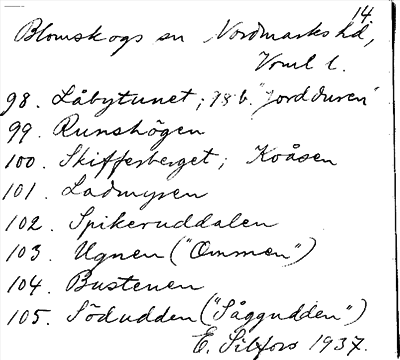 14.
Blomskogs sn Nordmarks hd,
Vrml l.
98. Låbytunet; 98 b. "Jordduren"
99. Runshögen
100. Skifferberget; Koåsen
101. Ladmyren
102. Spikeruddalen
103. Ugnen ("Ommen")
104. Bustenen
105. Södudden ("Såggudden")
E. Silfors 1937.